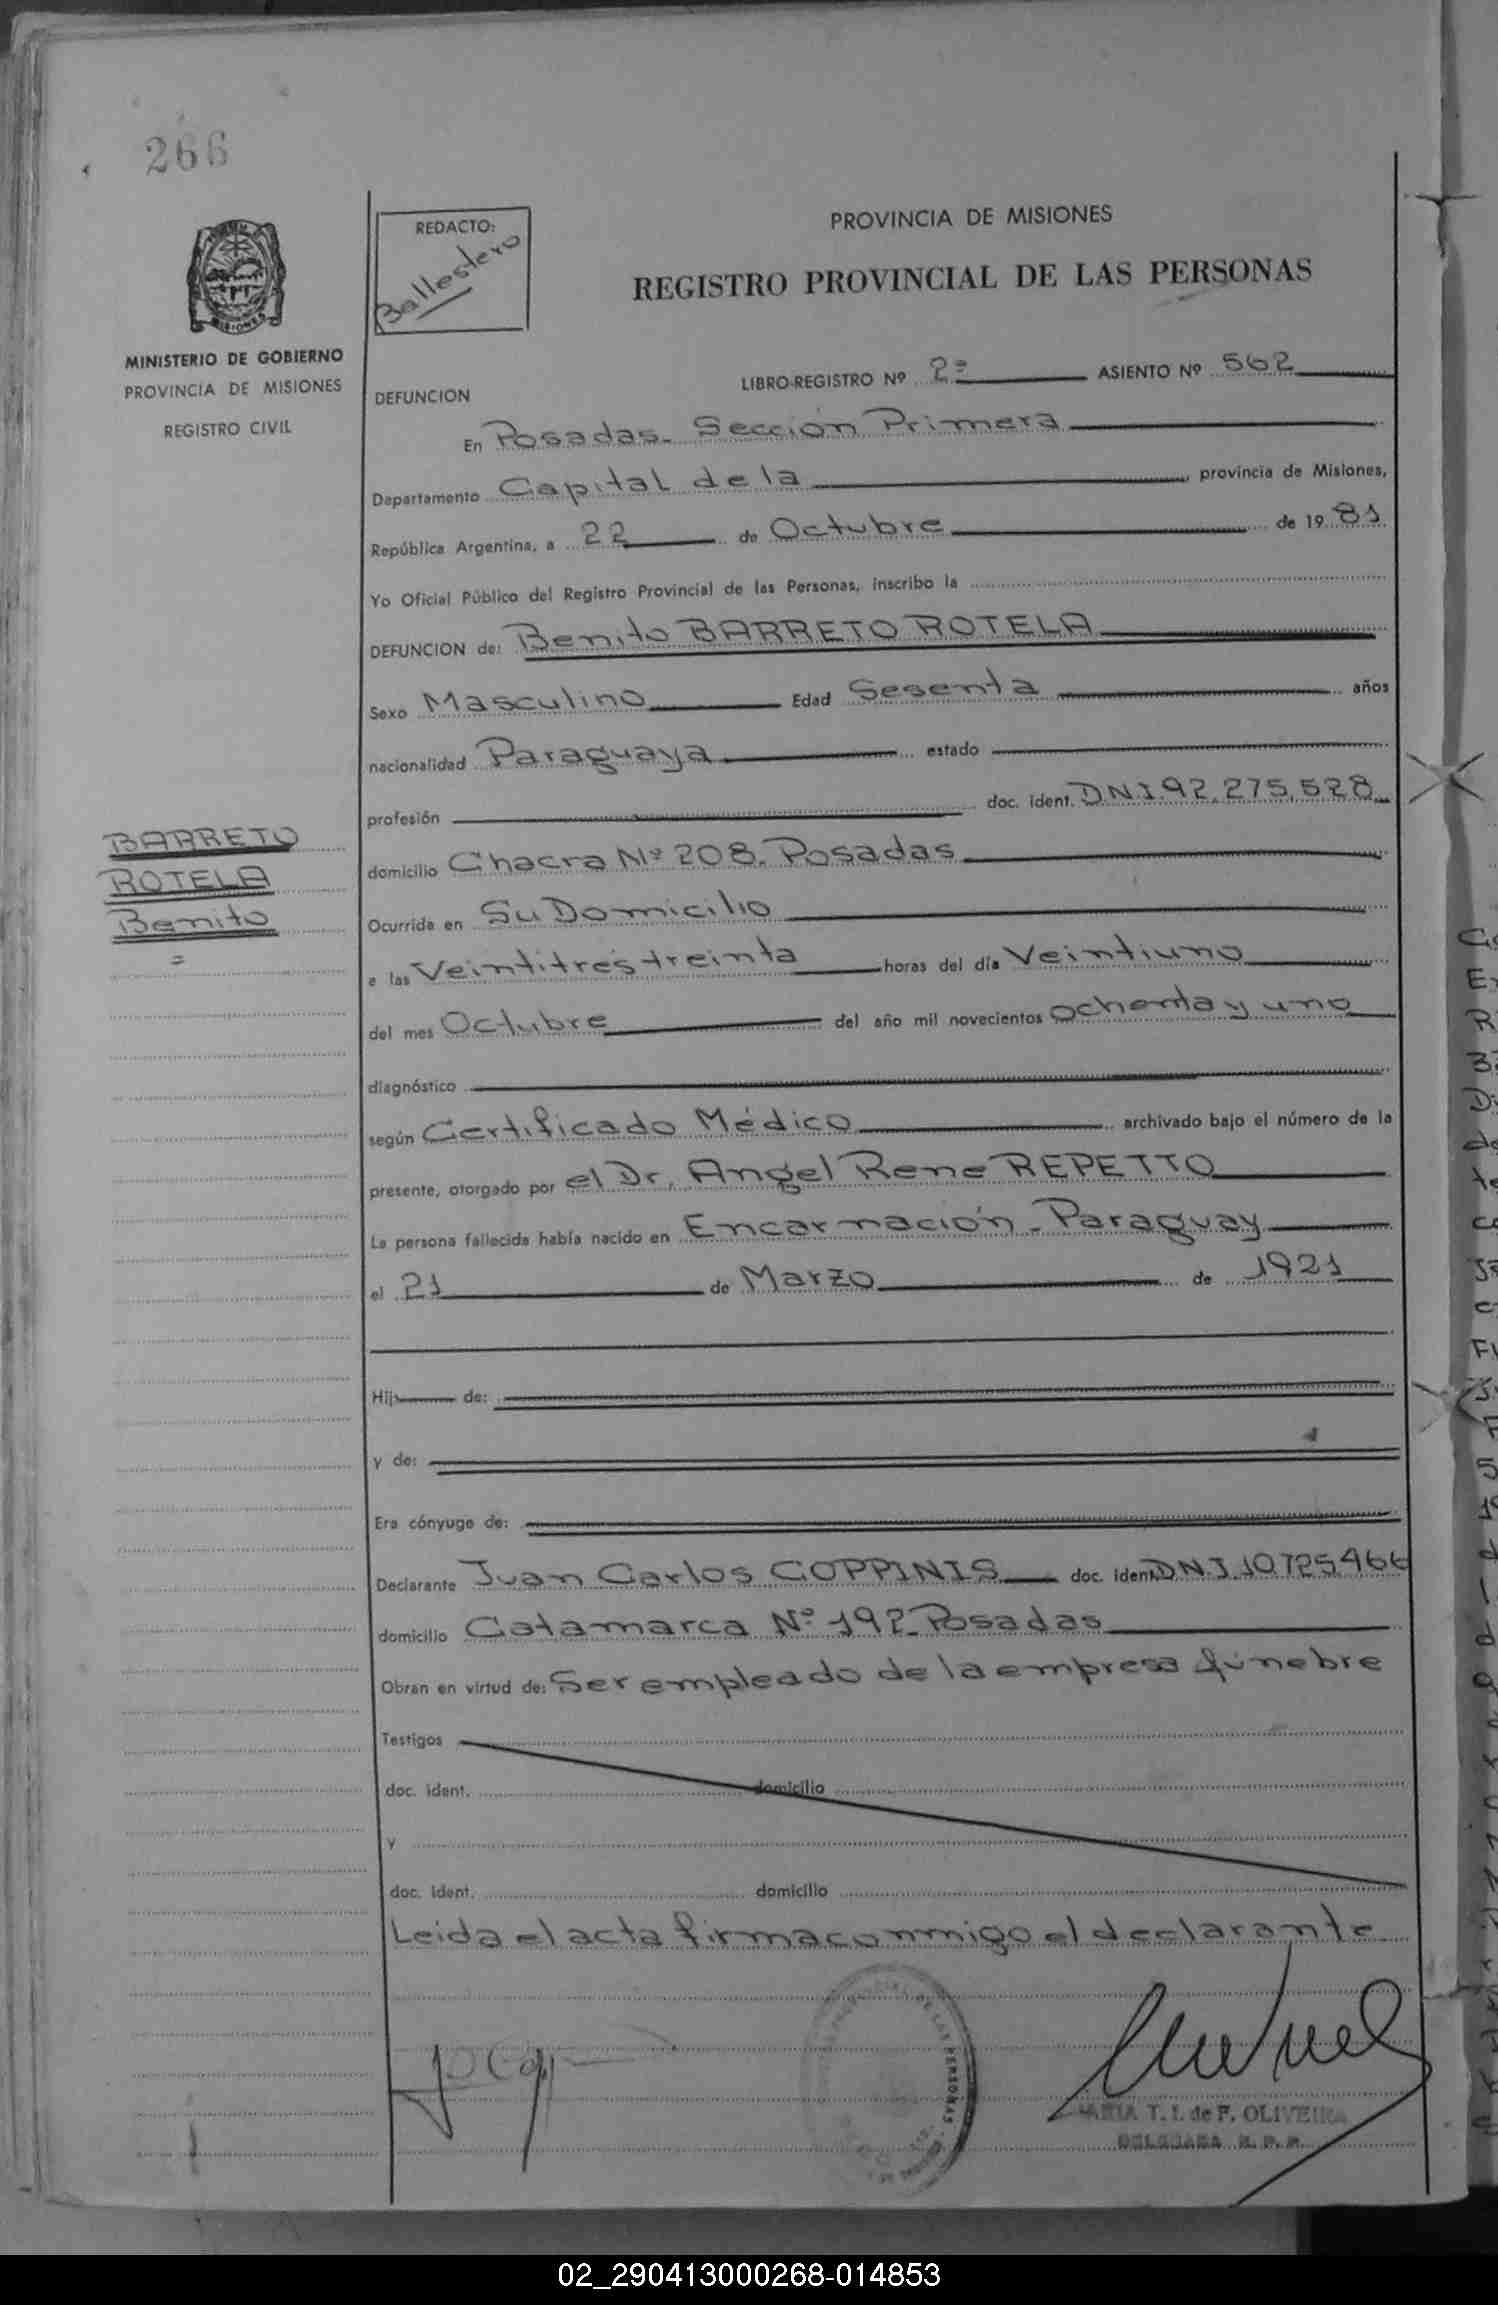 266
MINISTERIO DE GOBIERNO
PROVINCIA DE MISIONES
REGISTRO CIVIL
REDACTO:
Ballestero
PROVINCIA DE MISIONES
REGISTRO PROVINCIAL DE LAS PERSONAS
DEFUNCION LIBRO-REGISTRO Nº 2º ASIENTO Nº 562
En Posadas. Sección Primera
Departamento Capital de la provincia de Misiones,
República Argentina, a 22 de Octubre de 1981
Yo Oficial Público del Registro Provincial de las Personas, inscribo la
DEFUNCION de: Benito BARRETO ROTELA
Sexo Masculino Edad Sesenta años
nacionalidad Paraguaya estado
profesión doc. ident. DNI 92.275.528
domicilio Chacra Nº 208. Posadas
Ocurrida en Su Domicilio
a las Veintitrés treinta horas del día Veintiuno
del mes Octubre del año mil novecientos ochenta y uno
diagnóstico
según Certificado Médico archivado bajo el número de la
presente, otorgado por el Dr. Angel Rene REPETTO
La persona fallecida había nacido en Encarnación - Paraguay
el 21 de Marzo de 1921
Hij de:
y de:
Era cónyuge de:
Declarante Juan Carlos COPPINIS doc. ident. DNI 10.725.466
domicilio Catamarca Nº 192 Posadas
Obran en virtud de: Ser empleado de la empresa fúnebre
Testigos
doc. ident. domicilio
y
doc. ident. domicilio
Leida el acta firma conmigo el declarante
BARRETO
ROTELA
Benito
MARIA T. I. de F. OLIVEIRA
DELEGADA R. P. P.
02_290413000268-014853